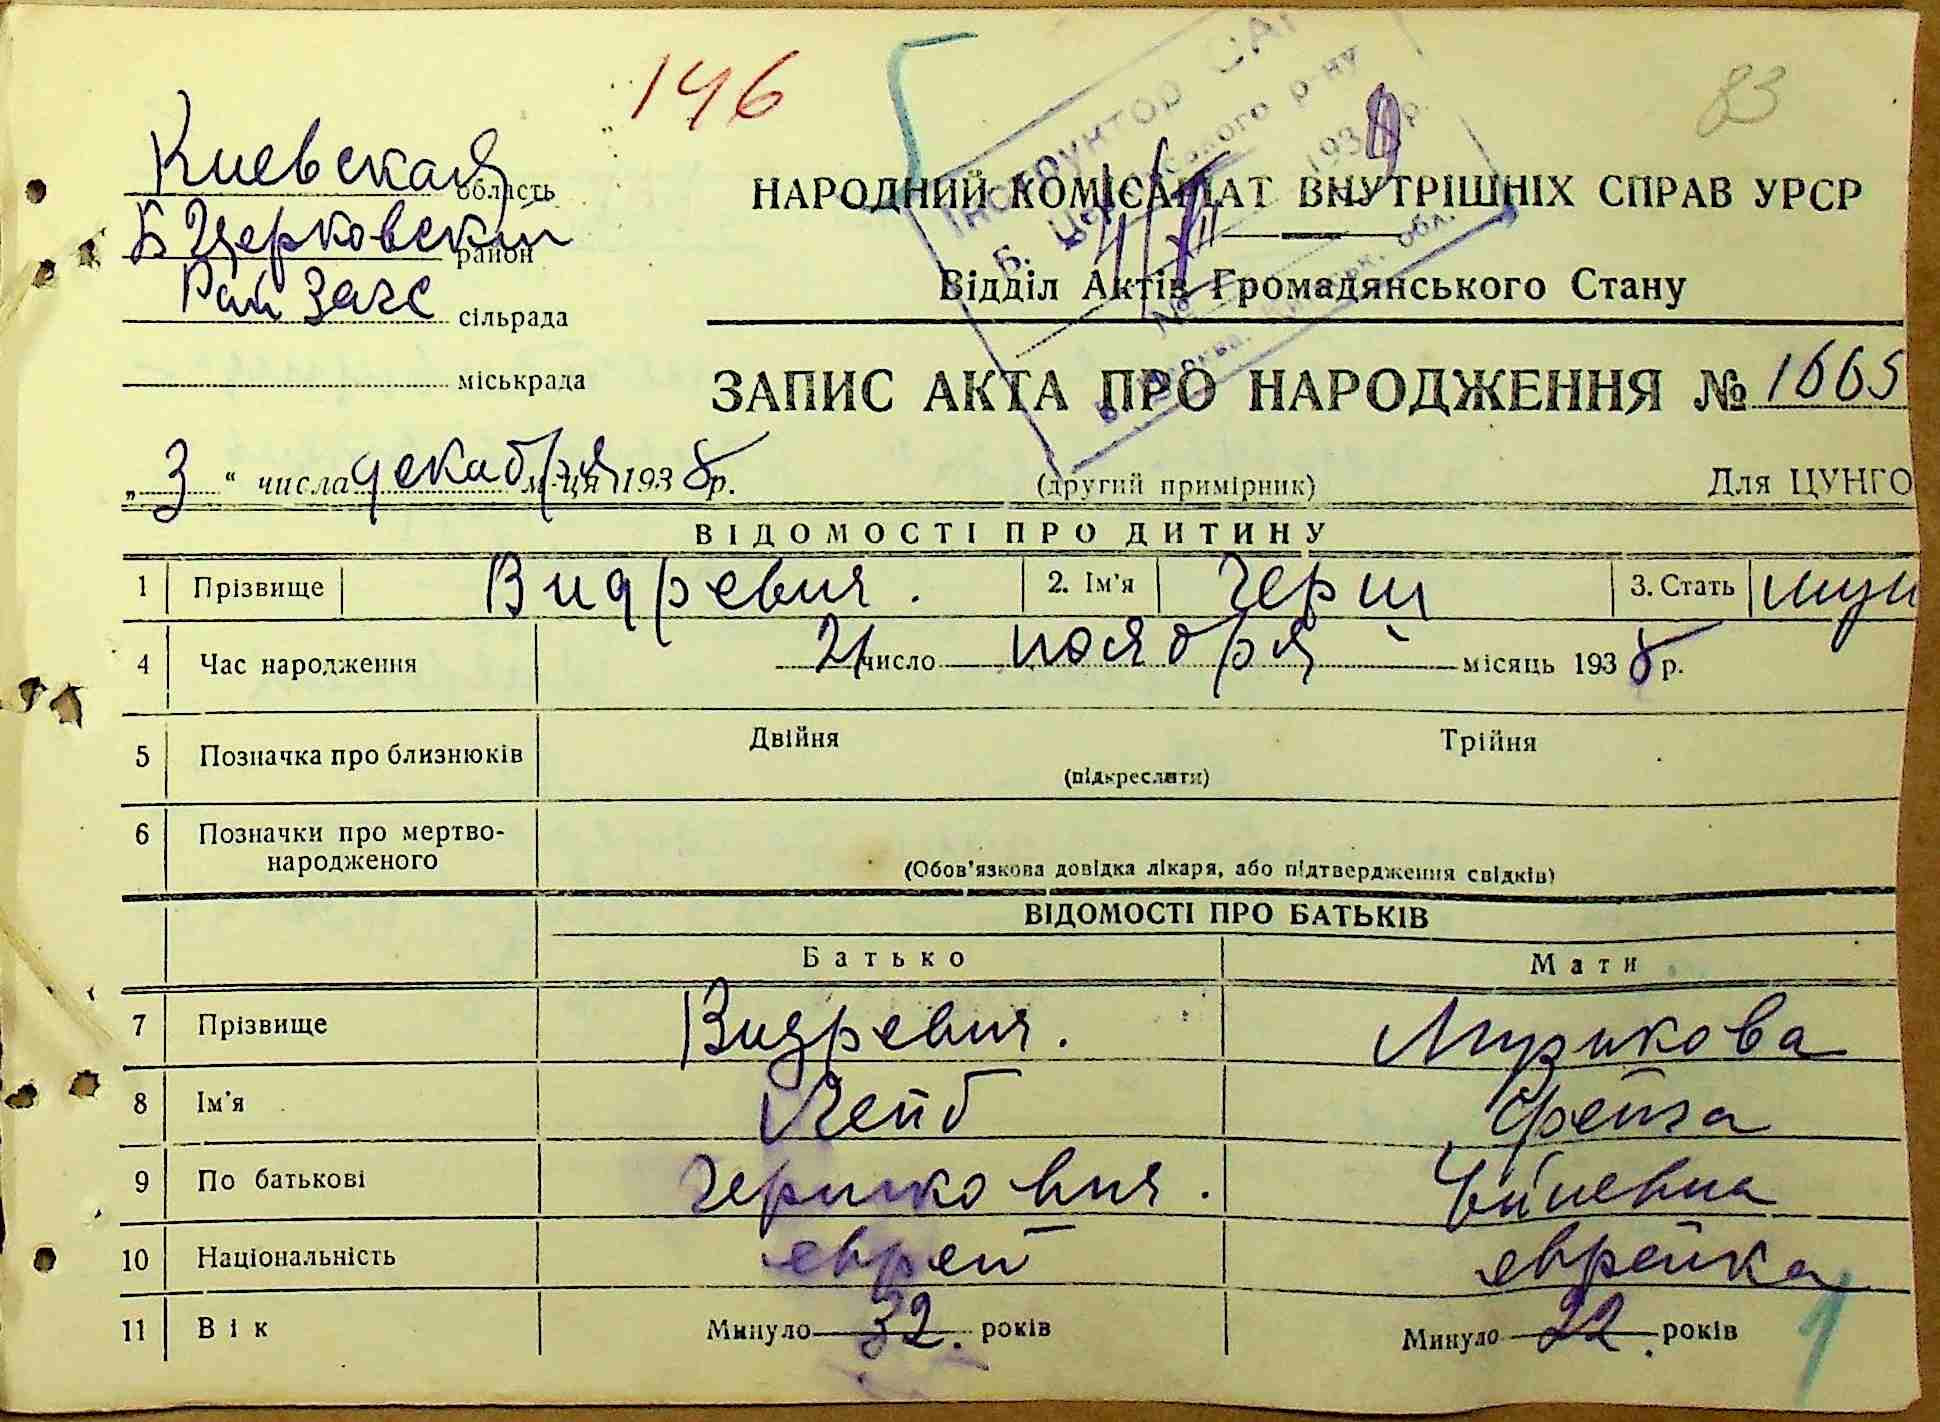 146
83
Киевская область
Б Церковский район
Рай Загс сільрада
міськрада
Інструктор
Б. Церківського р-ну
193 9 р.
НАРОДНИЙ КОМІСАРІАТ ВНУТРІШНІХ СПРАВ УРСР
Відділ Актів Громадянського Стану
ЗАПИС АКТА ПРО НАРОДЖЕННЯ № 1665
„ 3 “ числа декабря м-ця 1938 р.
(другий примірник)
Для ЦУНГО
ВІДОМОСТІ ПРО ДИТИНУ
1 Прізвище Видревич. 2. Ім'я Герш 3. Стать муж
4 Час народження 21 число ноября місяць 1938 р.
5 Позначка про близнюків Двійня Трійня
(підкреслити)
6 Позначки про мертво-
народженого
(Обов'язкова довідка лікаря, або підтвердження свідків)
ВІДОМОСТІ ПРО БАТЬКІВ
Батько Мати
7 Прізвище Видревич. Мурикова
8 Ім'я Лейб Фейга
9 По батькові Гершкович.
10 Національність еврей еврейка
11 Вік Минуло 32. років Минуло 22. років
1